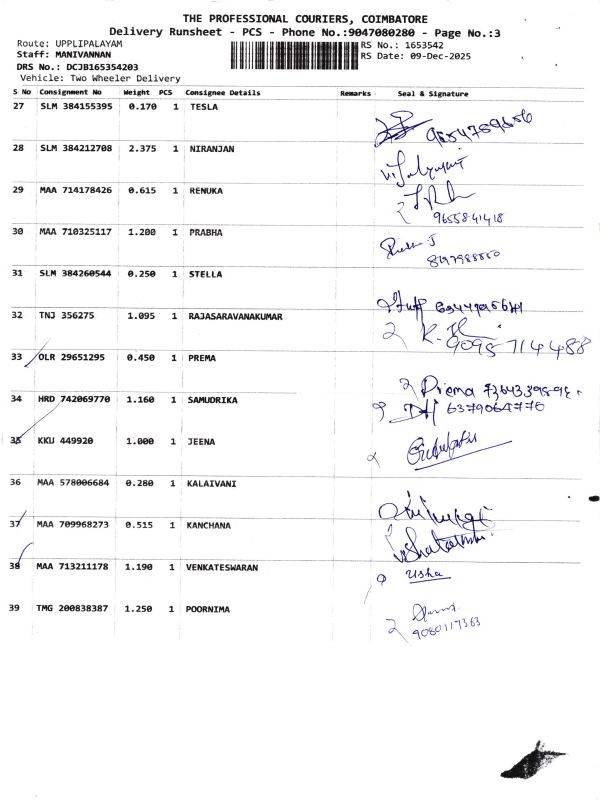 THE PROFESSIONAL COURIERS, COIMBATORE
Delivery Runsheet - PCS - Phone No.:9047080280 - Page No.:3
Route: UPPLIPALAYAM RS No.: 1653542
Staff: MANIVANNAN RS Date: 09-Dec-2025
DRS No.: DCJB165354203
Vehicle: Two Wheeler Delivery
S No Consignment No Weight PCS Consignee Details Remarks Seal & Signature
27 SLM 384155395 0.170 1 TESLA
28 SLM 384212708 2.375 1 NIRANJAN
29 MAA 714178426 0.615 1 RENUKA
9655841418
30 MAA 710325117 1.200 1 PRABHA
31 SLM 384260544 0.250 1 STELLA
32 TNJ 356275 1.095 1 RAJASARAVANAKUMAR
9095714488
33 OLR 29651295 0.450 1 PREMA
Prema
34 HRD 742069770 1.160 1 SAMUDRIKA
6379064770
35 KKU 449920 1.000 1 JEENA
36 MAA 578006684 0.280 1 KALAIVANI
37 MAA 709968273 0.515 1 KANCHANA
38 MAA 713211178 1.190 1 VENKATESWARAN
Usha
39 TMG 200838387 1.250 1 POORNIMA
9080117363